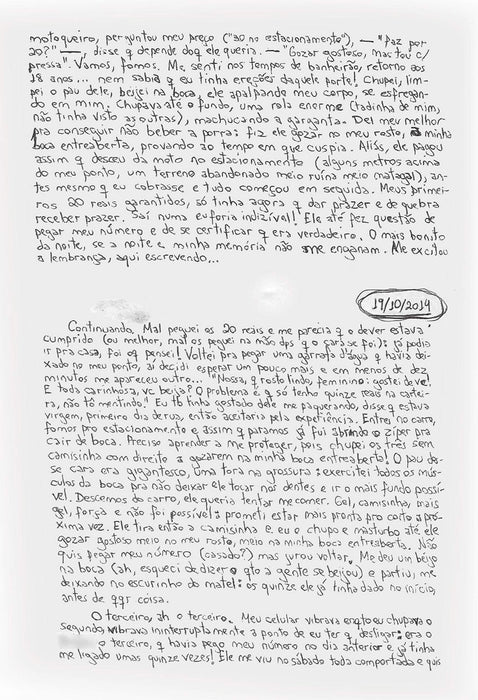 motoqueiro, perguntou meu preço ("20 no estacionamento"), — "Faz por
20?" —, disse q depende doq ele queria. — "Gozar gostoso, mas tou c/
pressa". Vamos, fomos. Me senti nos tempos de banheirão, retorno aos
18 anos... nem sabia q eu tinha ereções daquele porte! Chupei, lim-
pei o pau dele, beijei na boca, ele apalpando meu corpo, se esfregan-
do em mim. Chupava até o fundo, uma rola enorme (tadinha de mim,
não tinha visto as outras), machucando a garganta. Dei meu melhor
pra conseguir não beber a porra: fiz ele gozar no meu rosto, a minha
boca entreaberta, provando ao tempo em que cuspia. Aliás, ele pagou
assim q desceu da moto no estacionamento (alguns metros acima
do meu ponto, um terreno abandonado meio ruína meio matagal), an-
tes mesmo q eu cobrasse e tudo começou em seguida. Meus primei-
ros 20 reais garantidos, só tinha agora q dar prazer e de quebra
receber prazer. Saí numa euforia indizível! Ele até fez questão de
pegar meu número e de se certificar q era verdadeiro. O mais bonito
da noite, se a noite e minha memória não me enganam. Me excitou
a lembrança, aqui escrevendo...
19/10/2014
Continuando. Mal peguei os 20 reais e me parecia q o dever estava
cumprido (ou melhor, mal os peguei na mão dps q o cara se foi): já podia
ir pra casa, foi oq pensei! Voltei pra pegar uma garrafa d'água q havia dei-
xado no meu ponto, aí decidi esperar um pouco mais e em menos de dez
minutos me apareceu outro... "Nossa, q rosto lindo, feminino: gostei de ve!
E toda carinhosa, vc beija? O problema é q só tenho quinze reais na cartei-
ra, não tô mentindo". Eu tb tinha gostado dele me paquerando, disse q estava
virgem, primeiro dia de rua, então aceitaria pela experiência. Entrei no carro,
fomos pro estacionamento e assim q paramos já fui abrindo o zíper pra
cair de boca. Preciso aprender a me proteger, pois chupei os três sem
camisinha com direito a gozarem na minha boca entreaberta! O pau des-
se cara era gigantesco, uma tora na grossura: exercitei todos os mús-
culos da boca pra não deixar ele tocar nos dentes e ir o mais fundo possí-
vel. Descemos do carro, ele queria tentar me comer. Gel, camisinha, mais
gel, força e não foi possível: prometi estar mais pronta pro coito a pró-
xima vez. Ele tira então a camisinha e eu o chupo e masturbo até ele
gozar gostoso meio no meu rosto, meio na minha boca entreaberta. Não
quis pegar meu número (casado?) mas jurou voltar. Me deu um beijo
na boca (ah, esqueci de dizer o qto a gente se beijou) e partiu, me
deixando no escurinho do matel: os quinze ele já tinha dado no início,
antes de qqr coisa.
O terceiro, ah o terceiro. Meu celular vibrava enqto eu chupava o
segundo, vibrava ininterruptamente a ponto de eu ter q desligar: era o
o terceiro, q havia pego meu número no dia anterior e já tinha
me ligado umas quinze vezes! Ele me viu no sábado toda comportada e quis